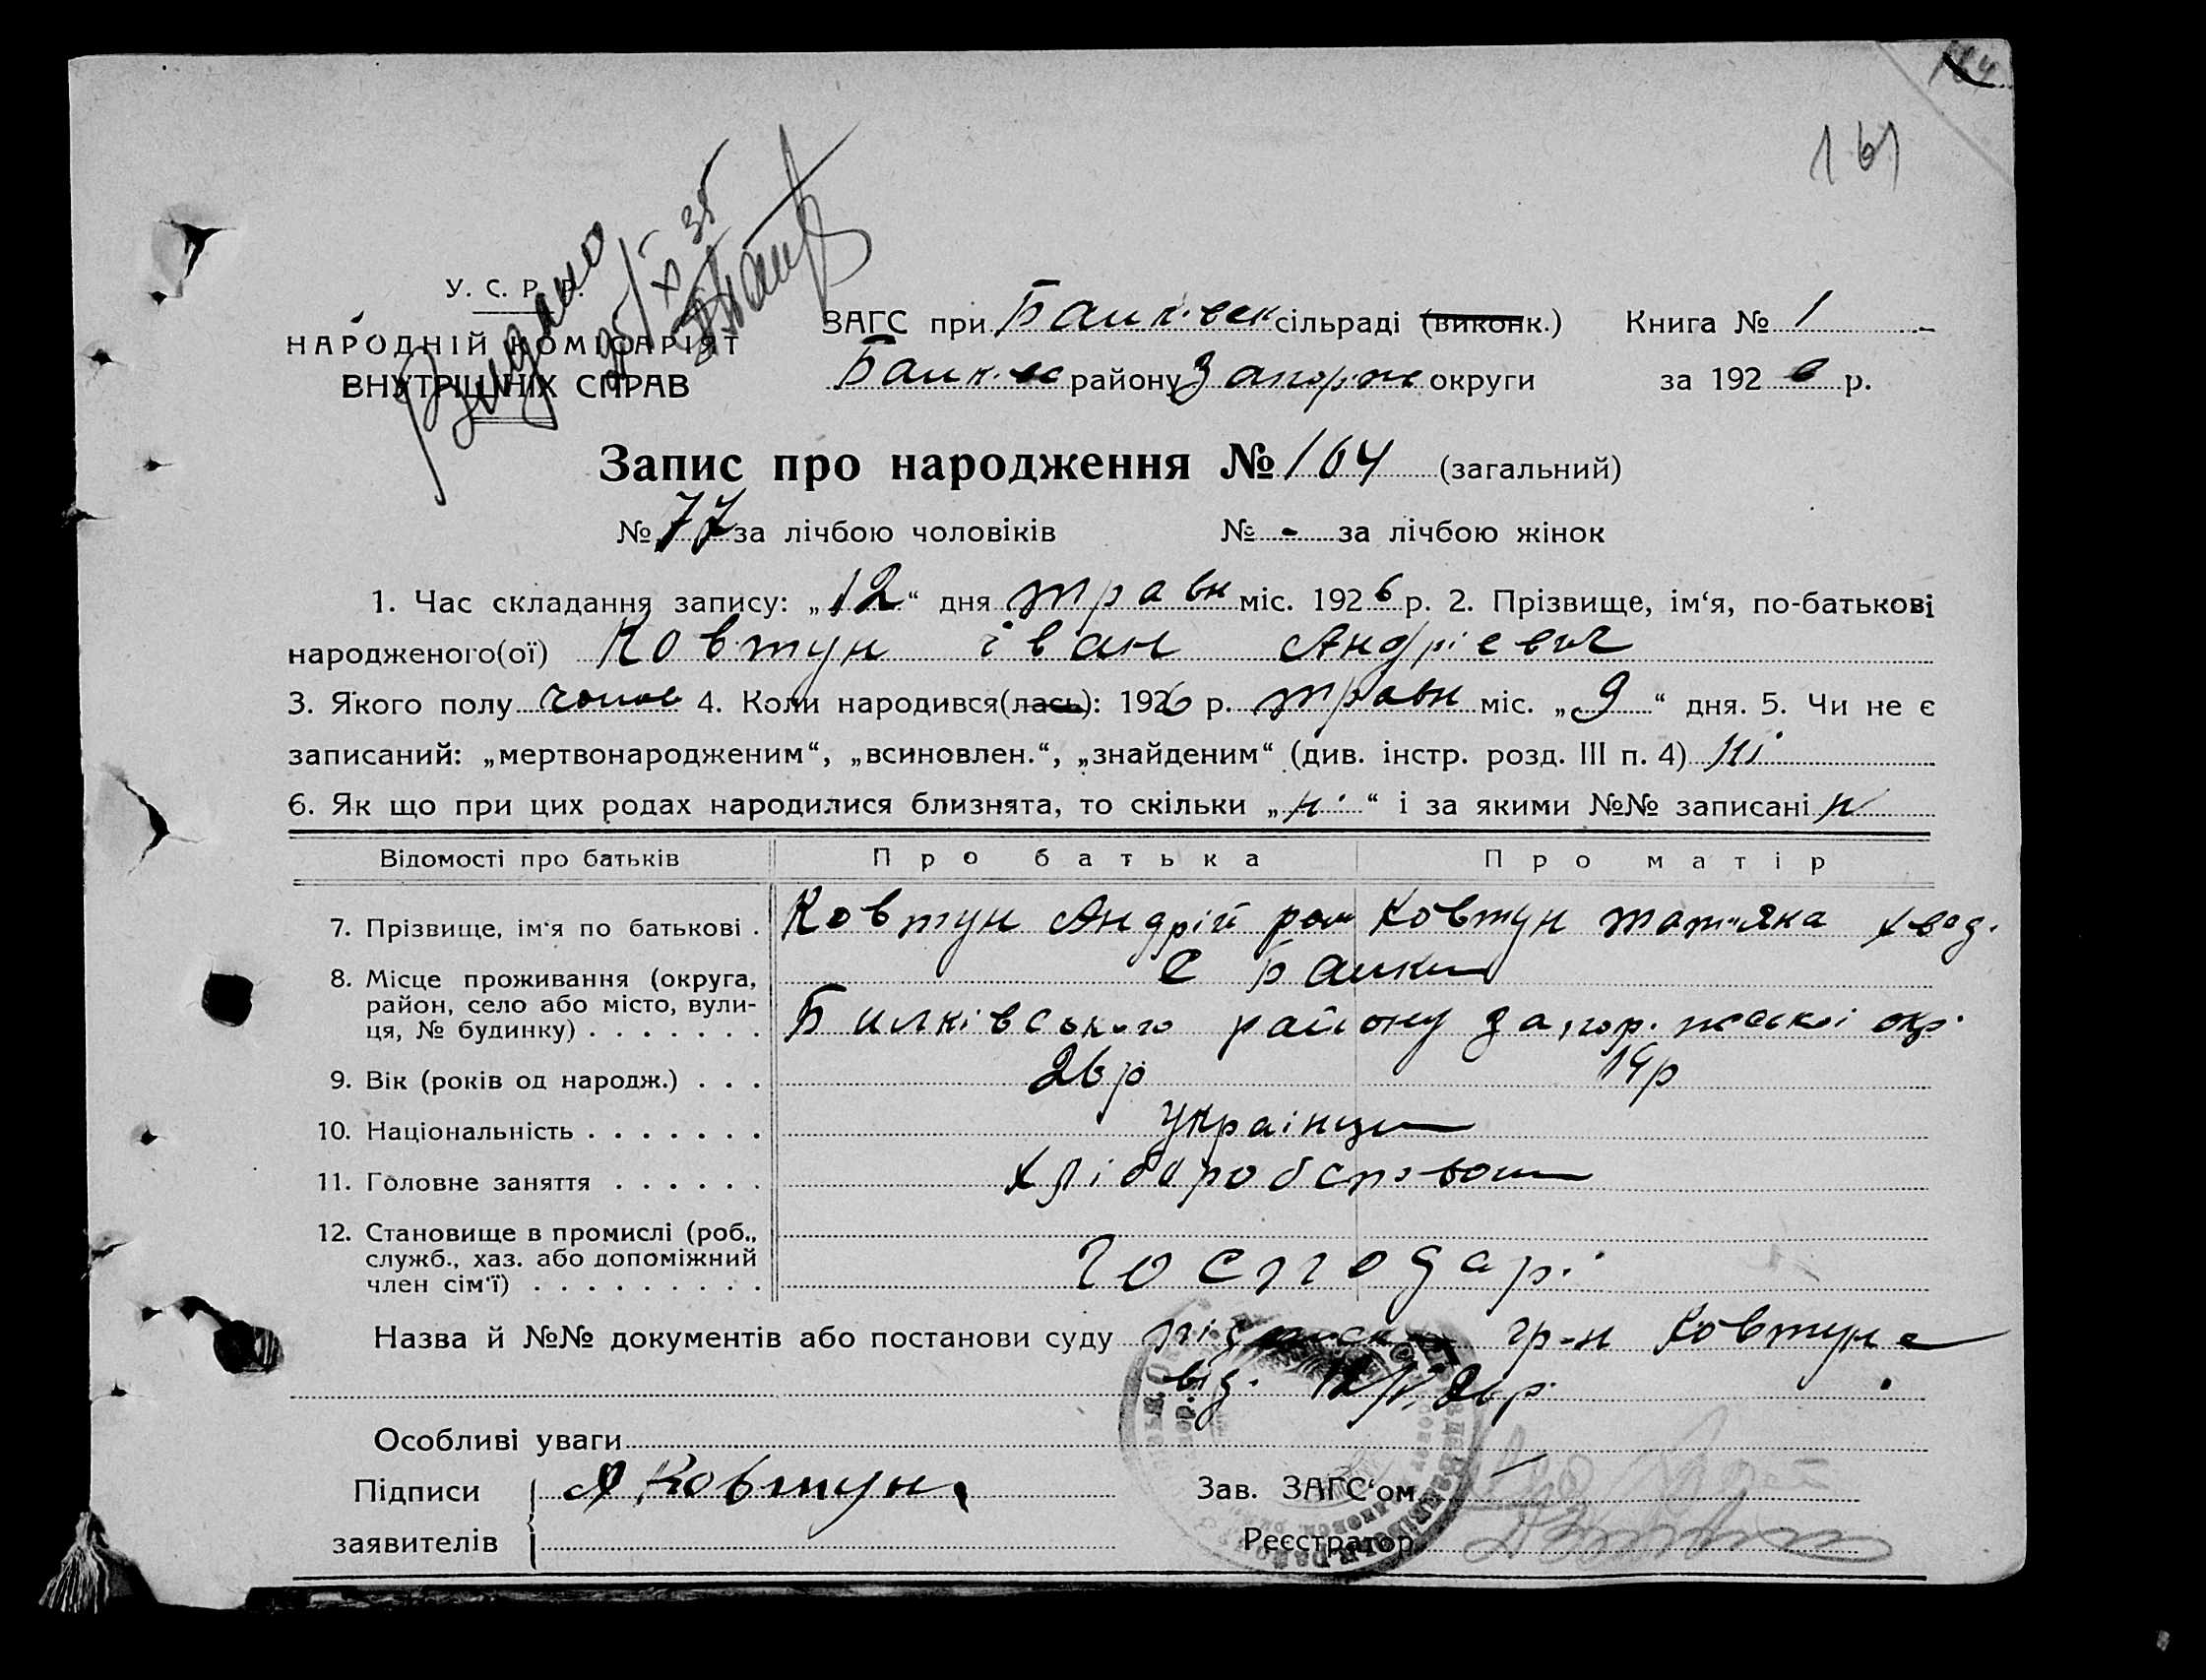 161
Видано
25/XI 35
У. С. Р. Р.
НАРОДНІЙ КОМІСАРІЯТ
ВНУТРІШНІХ СПРАВ
ЗАГС при Балк.век сільраді (виконк.) Книга № 1
району Запоріже округи за 192 6 р.
Запис про народження № 164 (загальний)
№ 77 за лічбою чоловіків № - за лічбою жінок
1. Час складання запису: „12“ дня травн міс. 1926 р. 2. Прізвище, ім‘я, по-батькові
народженого(ої) Ковтун іван Андрієвич
3. Якого полу чолов 4. Коли народився(лась): 1926 р. травн міс. „9“ дня. 5. Чи не є
записаний: „мертвонародженим“, „всиновлен.“, „знайденим“ (див. інстр. розд. III п. 4) ні
6. Як що при цих родах народилися близнята, то скільки „н“ і за якими №№ записані н
Відомості про батьків Про батька Про матір
7. Прізвище, ім‘я по батькові . Ковтун Андрій ром Ковтун
8. Місце проживання (округа,
район, село або місто, вули-
ця, № будинку) . . . . . . . району запор. жської окр.
9. Вік (років од народж.) . . . 26 р 19 р
10. Національність . . . . . . . українци
11. Головне заняття . . . . . . хліборобством
12. Становище в промислі (роб.,
служб., хаз. або допоміжний
член сім‘ї) . . . . . . . . . господарі
Назва й №№ документів або постанови суду гр-н Ковтуна
від. 12/V 26 р.
Особливі уваги
Підписи А Ковтун Зав. ЗАГС‘ом
заявителів Реєстратор